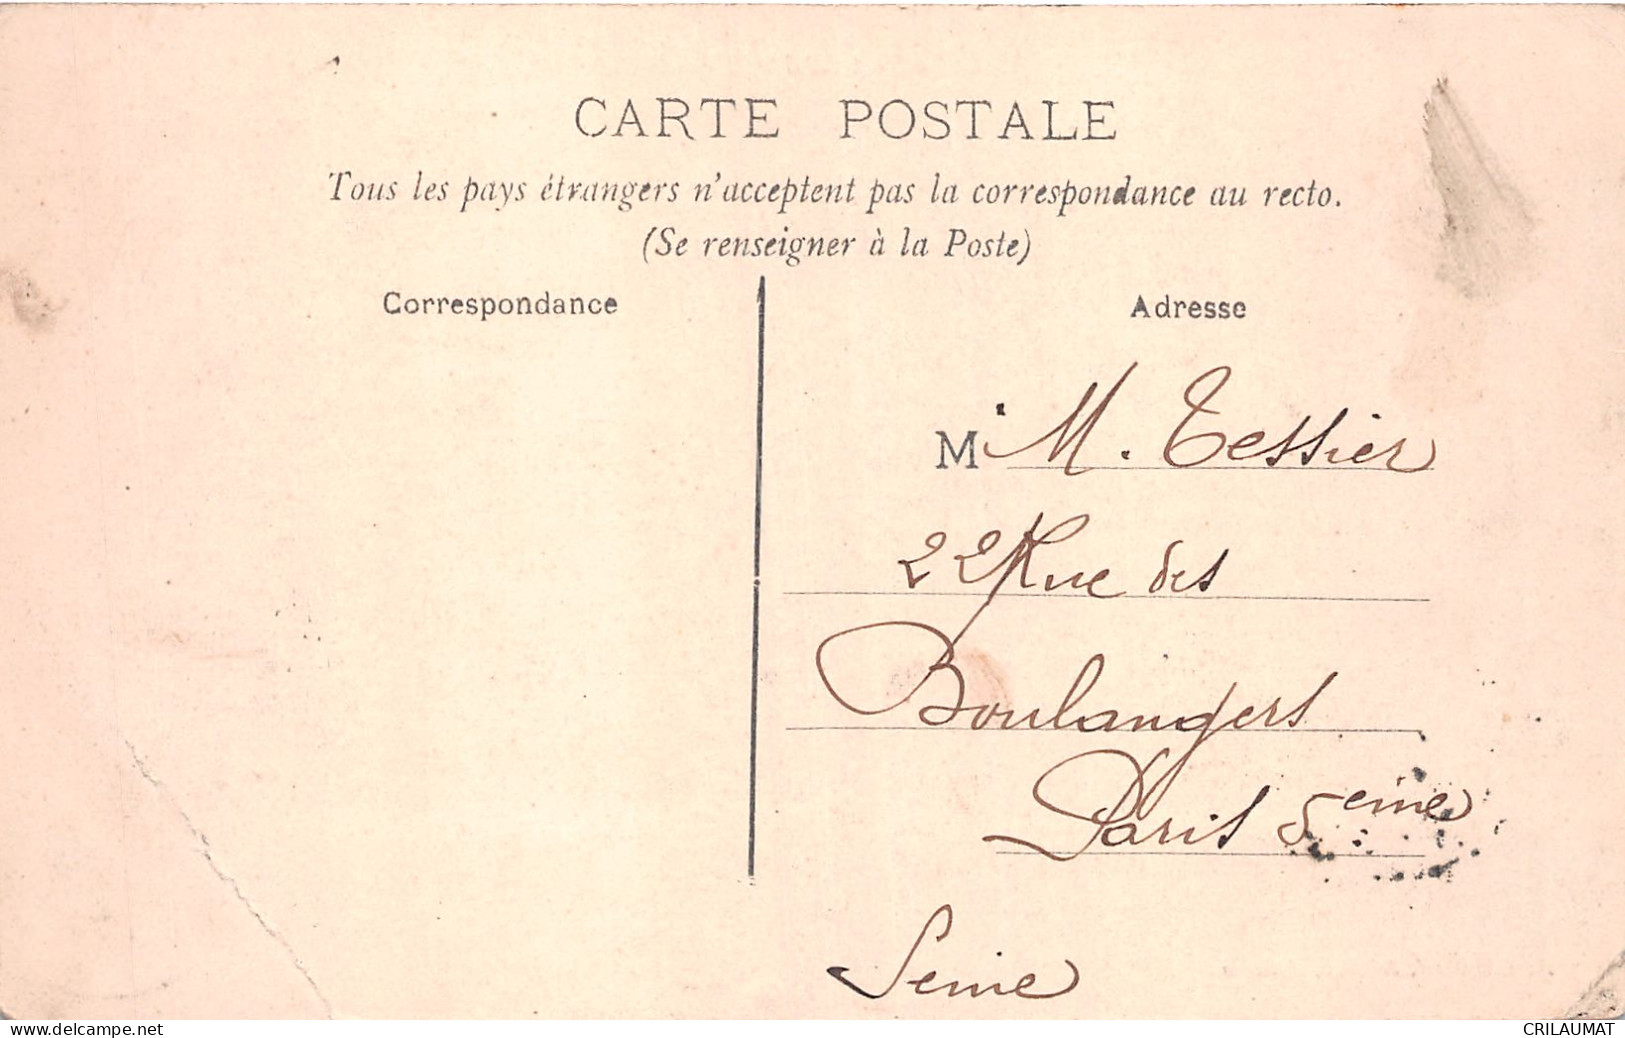 CARTE POSTALE
Tous les pays étrangers n'acceptent pas la correspondance au recto.
(Se renseigner à la Poste)
Correspondance
Adresse
M M. Tessier
22 Rue des
Boulangers
Paris 5eme
Seine
www.delcampe.net
CRILAUMAT